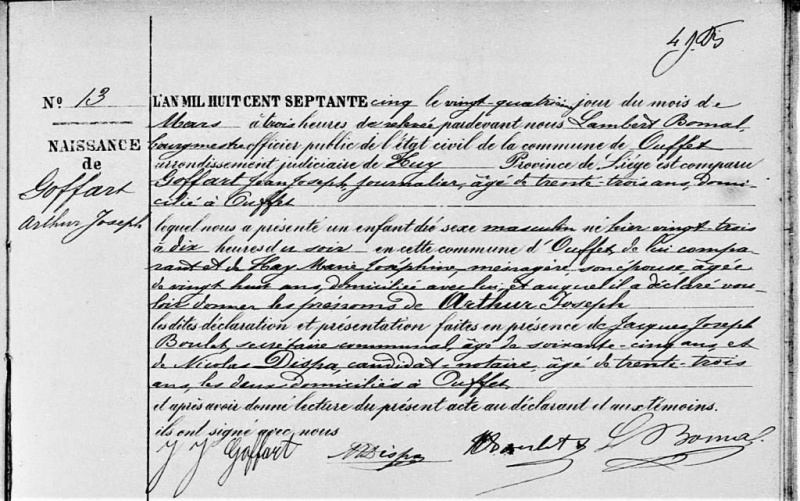 Nº 13
NAISSANCE
de
Goffart
Arthur Joseph
L'AN MIL HUIT CENT SEPTANTE cinq le vingt-quatrième jour du mois de
Mars à trois heures de relevée pardevant nous Lambert Bomal,
bourgmestre officier public de l'état civil de la commune de Ouffet
arrondissement judiciaire de Huy Province de Liége est comparu
Goffart Jean Joseph, journalier, âgé de trente-trois ans, domi-
cilié à Ouffet
lequel nous a présenté un enfant du sexe masculin né hier vingt-trois
à dix heures du soir en cette commune d'Ouffet, de lui compa-
rant et de Hay Marie Joséphine, ménagère, son épouse, âgée
de vingt huit ans, domiciliée avec lui, et auquel il a déclaré vou-
loir donner les prénoms de Arthur Joseph
les dites déclaration et présentation faites en présence de Jacques Joseph
Boulet, secrétaire communal, âgé de soixante-cinq ans, et
de Nicolas Dispa, candidat-notaire, âgé de trente-trois
ans, les deux domiciliés à Ouffet
et après avoir donné lecture du présent acte au déclarant et aux témoins.
ils ont signé avec nous
J J Goffart NDispa Boulet L Bomal.